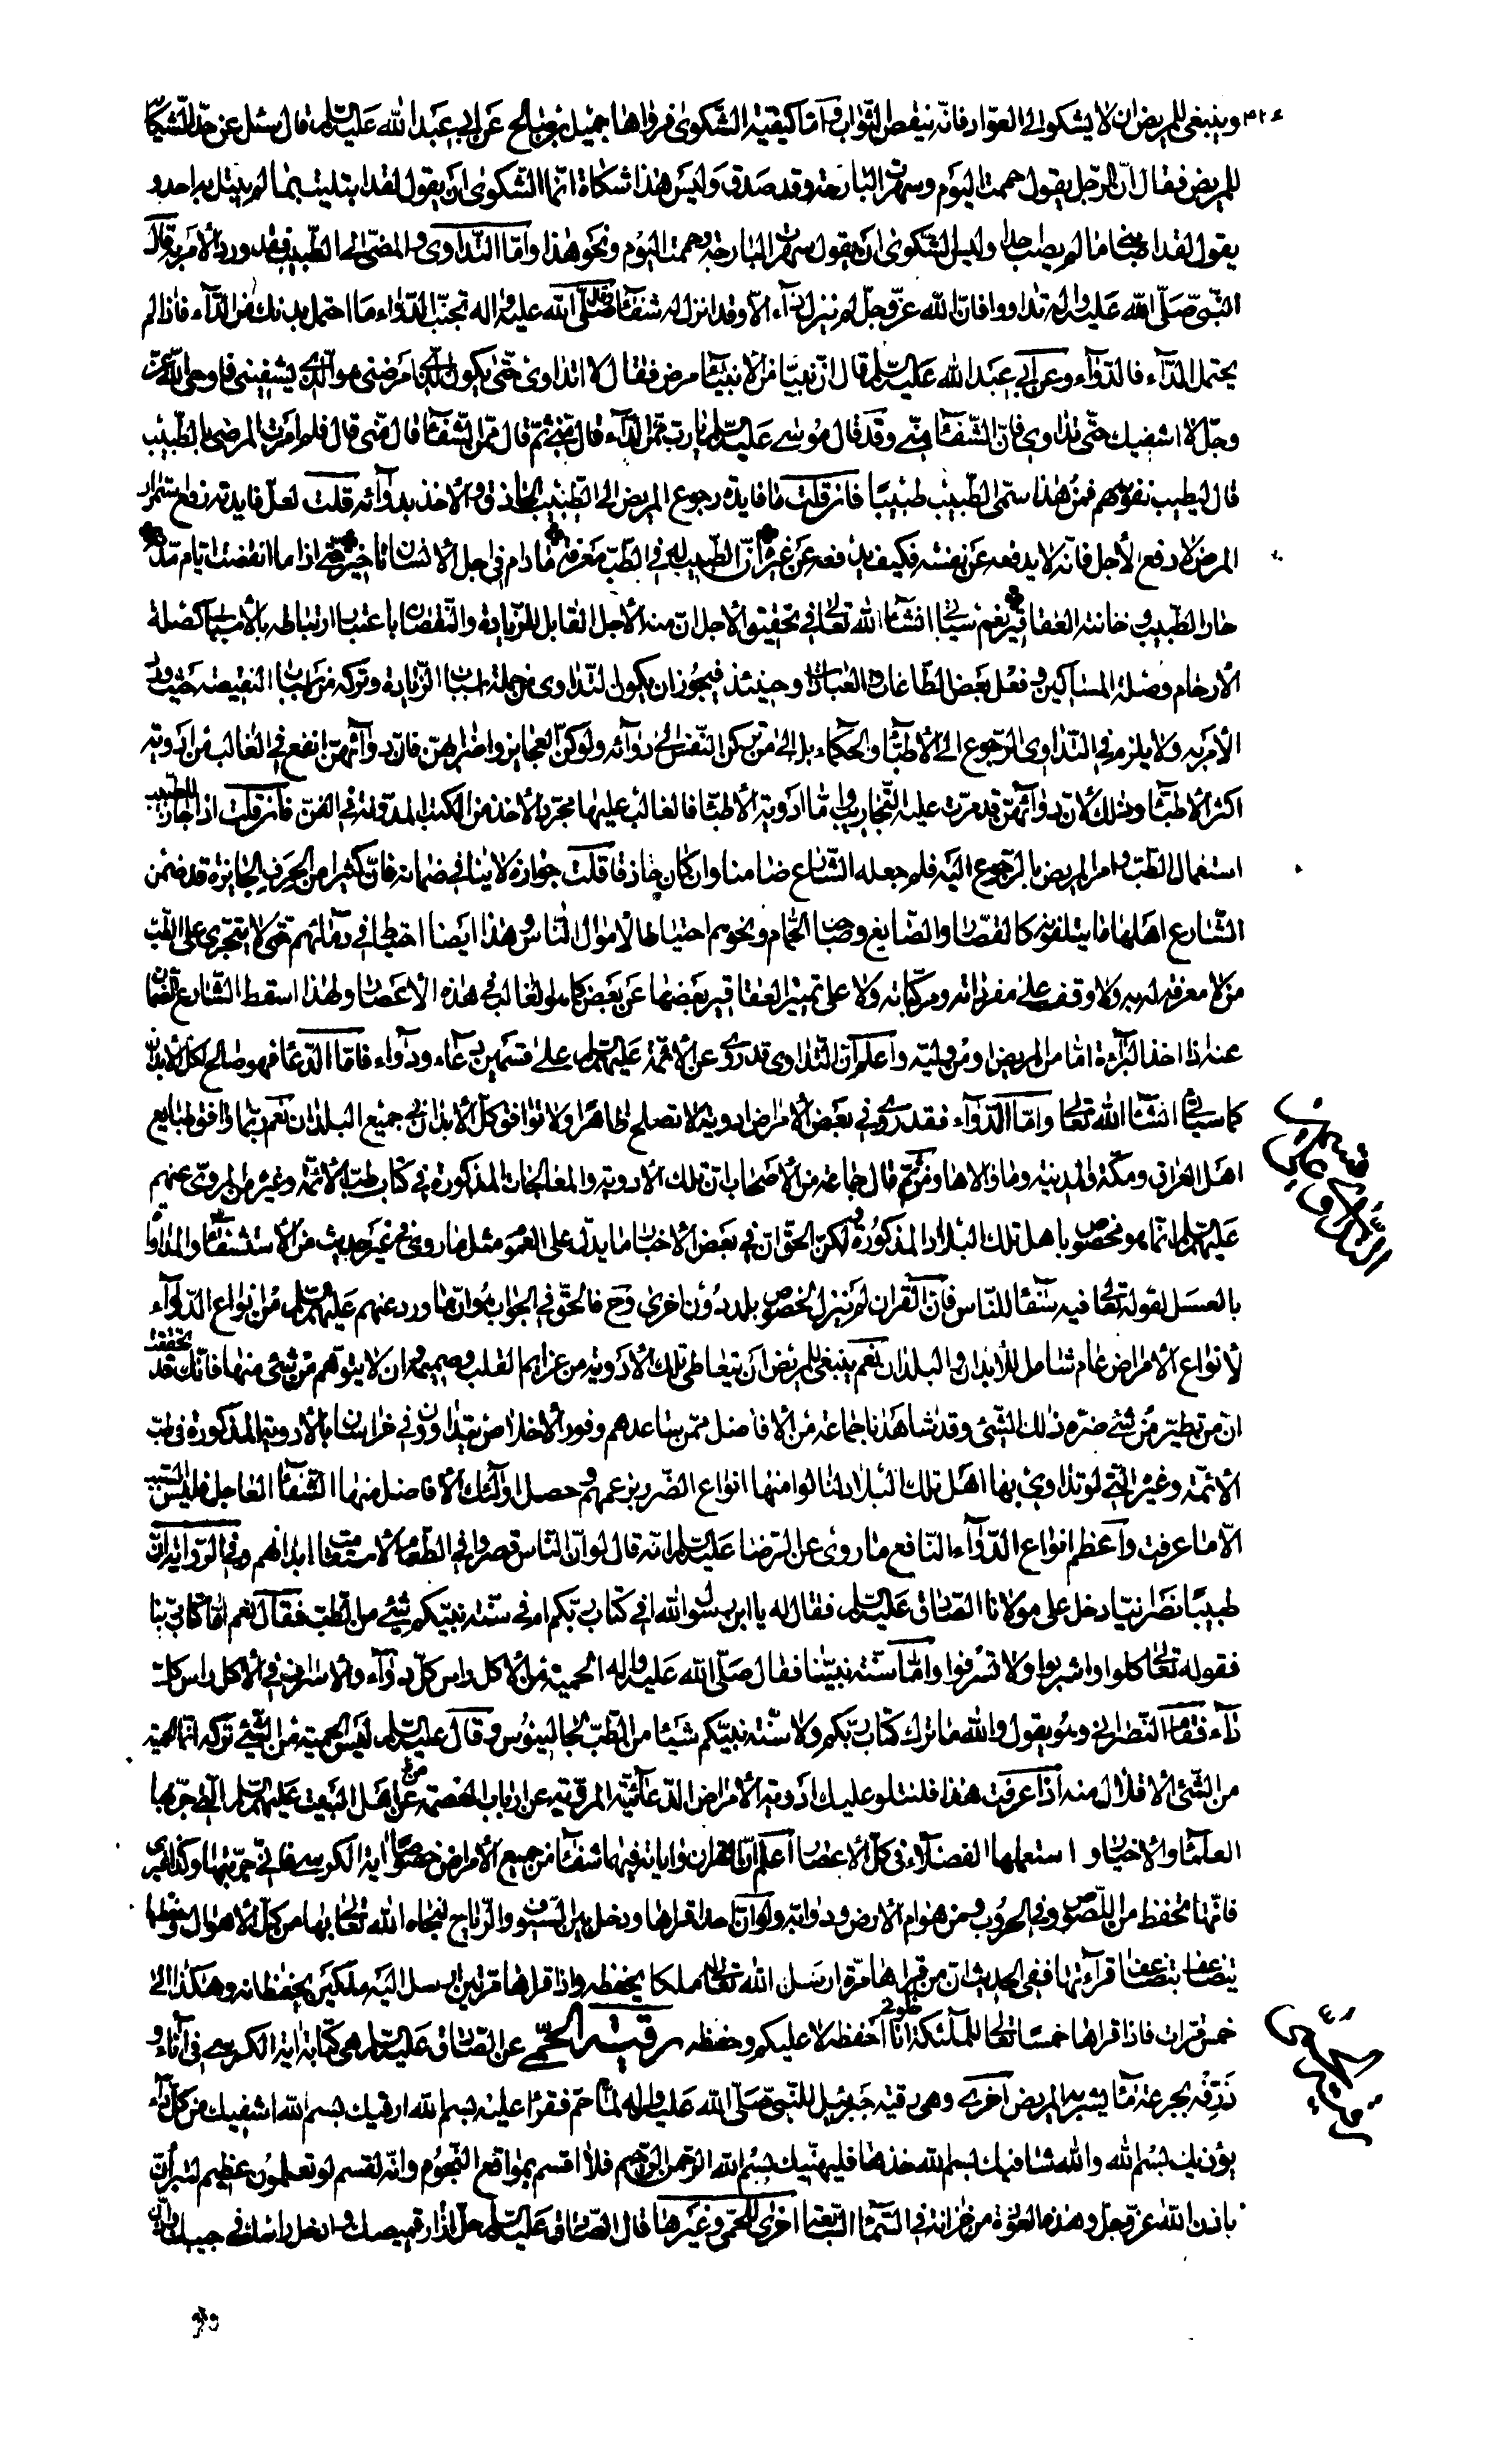 وينبغى للمريض ان لا يشكو الى العوّاد فانّه ينقص الثواب وامّا كيفيّة الشكوى فرواها جميل بن صالح عن ابى عبد الله عليه السلم قال سئل عن حدّ الشكاة
للمريض فقال انّ الرجل يقول حممت اليوم وسهرت البارحة وقد صدق وليس هذا شكاة انّما الشكوى ان يقول لقد ابتليت بما لم يبتل به احد و
يقول لقد اصابنى ما لم يصب احدا وليس الشكوى ان يقول سهرت البارحة وحممت اليوم ونحو هذا وامّا التداوى والمضىّ الى الطبيب فقد ورد الأمر به قال
النبىّ صلّى الله عليه واله تداووا فانّ الله عزّ وجلّ لم ينزل داء الّا وقد انزل له شفاء وقال صلّى الله عليه واله تجنّب الدواء ما احتمل بدنك الدّاء فاذا لم
يحتمل الدّاء فالدّواء وعن ابى عبد الله عليه السلم قال انّ نبيّا من الأنبياء مرض فقال لا اتداوى حتّى يكون الّذى امرضنى هو الّذى يشفينى فاوحى الله عزّ
وجلّ لا اشفيك حتّى تداوى فانّ الشفاء منّى وقد قال موسى عليه السلم يا ربّ ممّن الدّاء قال منّى ثمّ قال ممّن الشفاء قال منّى قال فلم امرت المرضى بالطبيب
قال ليطيب نفوسهم فمن هذا سمّى الطبيب طبيبا فان قلت ما فايدة رجوع المريض الى الطبيب الحاذق والأخذ بدوائه قلت لعلّ فايدته رفع استمرار
المرض لا دفع الأجل فانّه لا يدفعه عن نفسه فكيف يدفعه عن غيره انّ الطبيب له فى الطبّ معرفة ما دام فى اجل الأنسان تاخير حتّى اذا ما انقضت ايّام مدّته
حار الطبيب وخانته العقاقير نعم سياتى انشاء الله تعالى فى تحقيق الاجل انّ منه الأجل القابل للزيادة والنقصان باعتبار ارتباطه بالأسباب كصلة
الأرحام وصلة المساكين وفعل بعض الطاعات والعبادات وحينئذ فيجوز ان يكون التداوى من جملة اسباب الزيادة وتركه من اسباب النقيصة حيث ورد
الأمر به ولا يلزم فى التداوى الرجوع الى الأطبّاء والحكماء بل الى من تركن النفس الى دوائه ولو كنّ العجايز واضرابهنّ فانّ دوائهنّ انفع فى الغالب من ادوية
اكثر الأطبّاء وذلك لأنّ دوائهنّ قد مرّت عليه التجاريب وامّا ادوية الأطبّاء فالغالب عليها مجرّد الأخذ من الكتب المدوّنة فى الفنّ فان قلت اذا جاز للطبيب
استعمال الطبّ وامر المريض بالرجوع اليه فلم جعله الشارع ضامنا وان كان حاذقا قلت جوازه لا ينافى ضمانه فانّ كثيرا من الحرف الجايزة قد ضمن
الشارع اهلها ما يتلفونه كالقصّار والصايغ وصاحب الحمّام ونحوهم احتياطا لاموال الناس وهذا ايضا احتياط فى دمائهم حتّى لا يتجرّى على الطبّ
من لا معرفة له به ولا وقف على مفرداته ومركّباته ولا على تمييز العقاقير بعضها عن بعض كما هو الغالب فى هذه الأعصار ولهذا اسقط الشارع الضمان
عنه اذا اخذ البراءة امّا من المريض او من وليّه واعلم انّ التداوى قد روى عن الأئمّة عليهم السلم على قسمين دعاء ودواء فامّا الدعاء فهو صالح لكلّ الأبدان
كما سياتى انشاء الله تعالى وامّا الدّواء فقد روى فى بعض الأمراض ادوية لا تصلح ظاهرا ولا توافق كلّ الأبدان فى جميع البلدان نعم ربّما وافق طبايع
اهل العراق ومكّة والمدينة وما والاها ومن ثمّ قال جماعة من الأصحاب انّ تلك الادوية والمعالجات المذكورة فى كتاب طبّ الأئمّة وغيره من المروىّ عنهم
عليهم السلم انّما هو مخصوص باهل تلك البلاد المذكورة لكن الحقّ ان فى بعض الأخبار ما يدلّ على العموم مثل ما روى فى غير حديث من الأستشفاء والمداواة
بالعسل لقوله تعالى فيه شفاء للناس فانّ القران لم ينزل لخصوص بلد دون اخرى وح فالحقّ فى الجواب هو انّ ما ورد عنهم عليهم السلم من انواع الدّواء
لأنواع الأمراض عام شامل للأبدان والبلدان نعم ينبغى للمريض ان يتعاطى تلك الأدوية من عزايم القلب وصميمه وان لا يتوهّم من شئ منها فانّك قد تحقّقت
انّ من تطيّر من شئ ضرّه ذلك الشئ وقد شاهدنا جماعة من الأفاضل ممّن ساعدهم وفور الأخلاص يتداوون فى خراسان بالأدوية المذكورة فى طبّ
الأئمّة وغيره الّتى لو تداوى بها اهل تلك البلاد لنالوا منها انواع الضرر بزعمهم وحصل اولئك الأفاضل منها الشفاء العاجل فليس السبب
الّا ما عرفت واعظم انواع الدّواء النافع ما روى عن الرضا عليه السلم انّه قال لو انّ الناس قصروا فى الطعام لاستقامت ابدانهم وفى الرواية انّ
طبيبا نصرانيّا دخل على مولانا الصادق عليه السلم فقال له يا ابن رسول الله افى كتاب ربّكم ام فى سنّة نبيّكم شئ من الطبّ فقال نعم امّا كتاب ربّنا
فقوله تعالى كلوا واشربوا ولا تسرفوا وامّا سنّة نبيّنا فقال صلّى الله عليه واله الحمية من الأكل راس كلّ دواء والاسراف فى الأكل راس كلّ
داء فقام النصرانى وهو يقول والله ما ترك كتاب ربّكم ولا سنّة نبيّكم شيئا من الطبّ لجالينوس وقال عليه السلم ليس الحمية من الشئ تركه انّما الحمية
من الشئ الأقلال منه اذا عرفت هذا فلنتلو عليك ادوية الأمراض الدعائيّة المرويّة عن ارباب العصمة من اهل البيت عليهم السلم الّتى جرّبها
العلماء والأخيار واستعملها الفضلاء فى كلّ الأعصار اعلم انّ القران واياته فيها شفاء من جميع الأمراض خصوصا اية الكرسى فانّى جرّبتها وكذا غيرى
فانّها تحفظ من اللصوص وفى الحروب ومن هوام الأرض ودوابّه ولو انّ احدا قراها ودخل بين السيوف والرماح لنجّاه الله تعالى بها من كلّ الأهوال وحفظها
يتضاعف بتضاعف قرآءتها ففى الحديث انّ من قراها مرّة ارسل الله تعالى ملكا يحفظه واذا قراها مرّتين ارسل اليه ملكين يحفظانه وهكذا الى
خمس مرّات فاذا قراها خمسا قال تعالى للملئكة خلّوه انا احفظه لا عليكم وحفظه رقية الحمّى عن الصادق عليه السلم هى كتابة اية الكرسى فى اناء و
دفه بجرعة ماء يشربه المريض اخرى وهى رقية جبرئيل للنبىّ صلّى الله عليه واله لمّا حمّ فقرا عليه بسم الله ارقيك بسم الله اشفيك من كلّ داء
يؤذيك بسم الله والله شافيك بسم الله خذها فليهنّيك بسم الله الرحمن الرحيم فلا اقسم بمواقع النجوم وانّه لقسم لو تعلمون عظيم لتبرأنّ
باذن الله عزّ وجلّ وهذه العوذة من خزانة فى السماء السابعة اخرى للحمّى وغيرها قال الصادق عليه السلم حلّ ازرار قميصك وادخل راسك فى جيبك واذّن